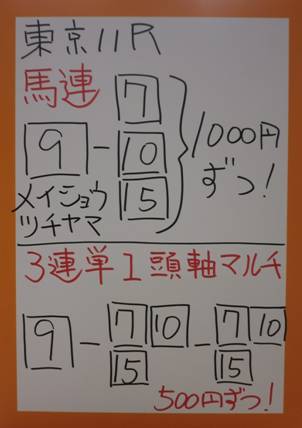 東京11R
馬連
9 - 7
10
15
1000円ずつ!
メイショウ
ツチヤマ
3連単1頭軸マルチ
9 - 7 10 - 7 10
15 15
500円ずつ!